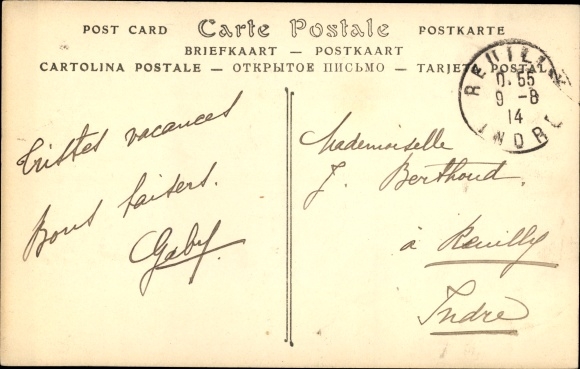 POST CARD Carte Postale POSTKARTE
BRIEFKAART — POSTKAART
CARTOLINA POSTALE — ОТКРЫТОЕ ПИСЬМО — TARJETA POSTAL
REUILLY
0.55
9 - 8
14
INDRE
Tristes vacances
Bons baisers.
Gaby.
Mademoiselle
J. Berthoud.
à Reuilly
Indre